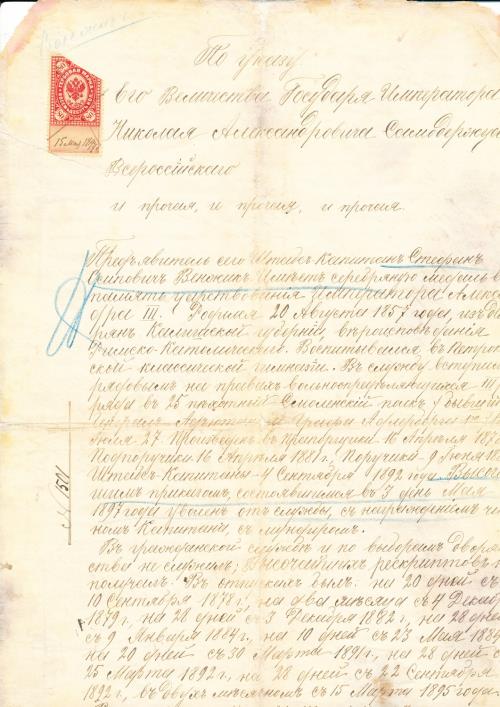 По указу
Его Величества Государя Императора
Николая Александровича Самодержца
Всероссійскаго
и прочая, и прочая, и прочая.
15 Мая 1897
Предъявитель сего Штабсъ-Капитанъ Стефанъ
Осиповичъ имѣетъ серебряную медаль въ
память царствованія Императора Алекс
дра III. Родился 20 Августа 1857 года, изъ
рянъ Калишской губерніи, вѣроисповѣданія
Римско-Католическаго. Воспитывался въ
ской классической гимназіи. Въ службу вступилъ
рядовымъ на правахъ вольноопредѣляющагося III
ряда въ 25 пѣхотный Смоленскій полкъ,
Іюля 27. Произведенъ въ прапорщики 16 Апрѣля
Подпоручики 16 Апрѣля 1881 г., Поручики 9 Іюня
Штабсъ-Капитаны 4 Сентября 1892 года. Высоч
шимъ приказомъ, состоявшимся въ 3 день Мая
1897 года уволенъ отъ службы, съ награжденіемъ чи
номъ Капитана, съ мундиромъ.
Въ гражданской службѣ и по выборамъ дворя
ства не служилъ; Высочайшихъ рескриптовъ
получалъ. Въ отпускахъ былъ: на 20 дней съ
10 Сентября 1878 г., на два мѣсяца съ 4 Декаб
1879 г., на 28 дней съ 3 Декабря 1882 г., на 28 дней
съ 9 Января 1884 г., на 10 дней съ 23 Мая
на 20 дней съ 30 Марта 1891 г., на 28 дней с
25 Марта 1892 г., на 28 дней съ 22 Сентября
1892 г., въ двухмѣсячномъ съ 15 Марта 1895 года